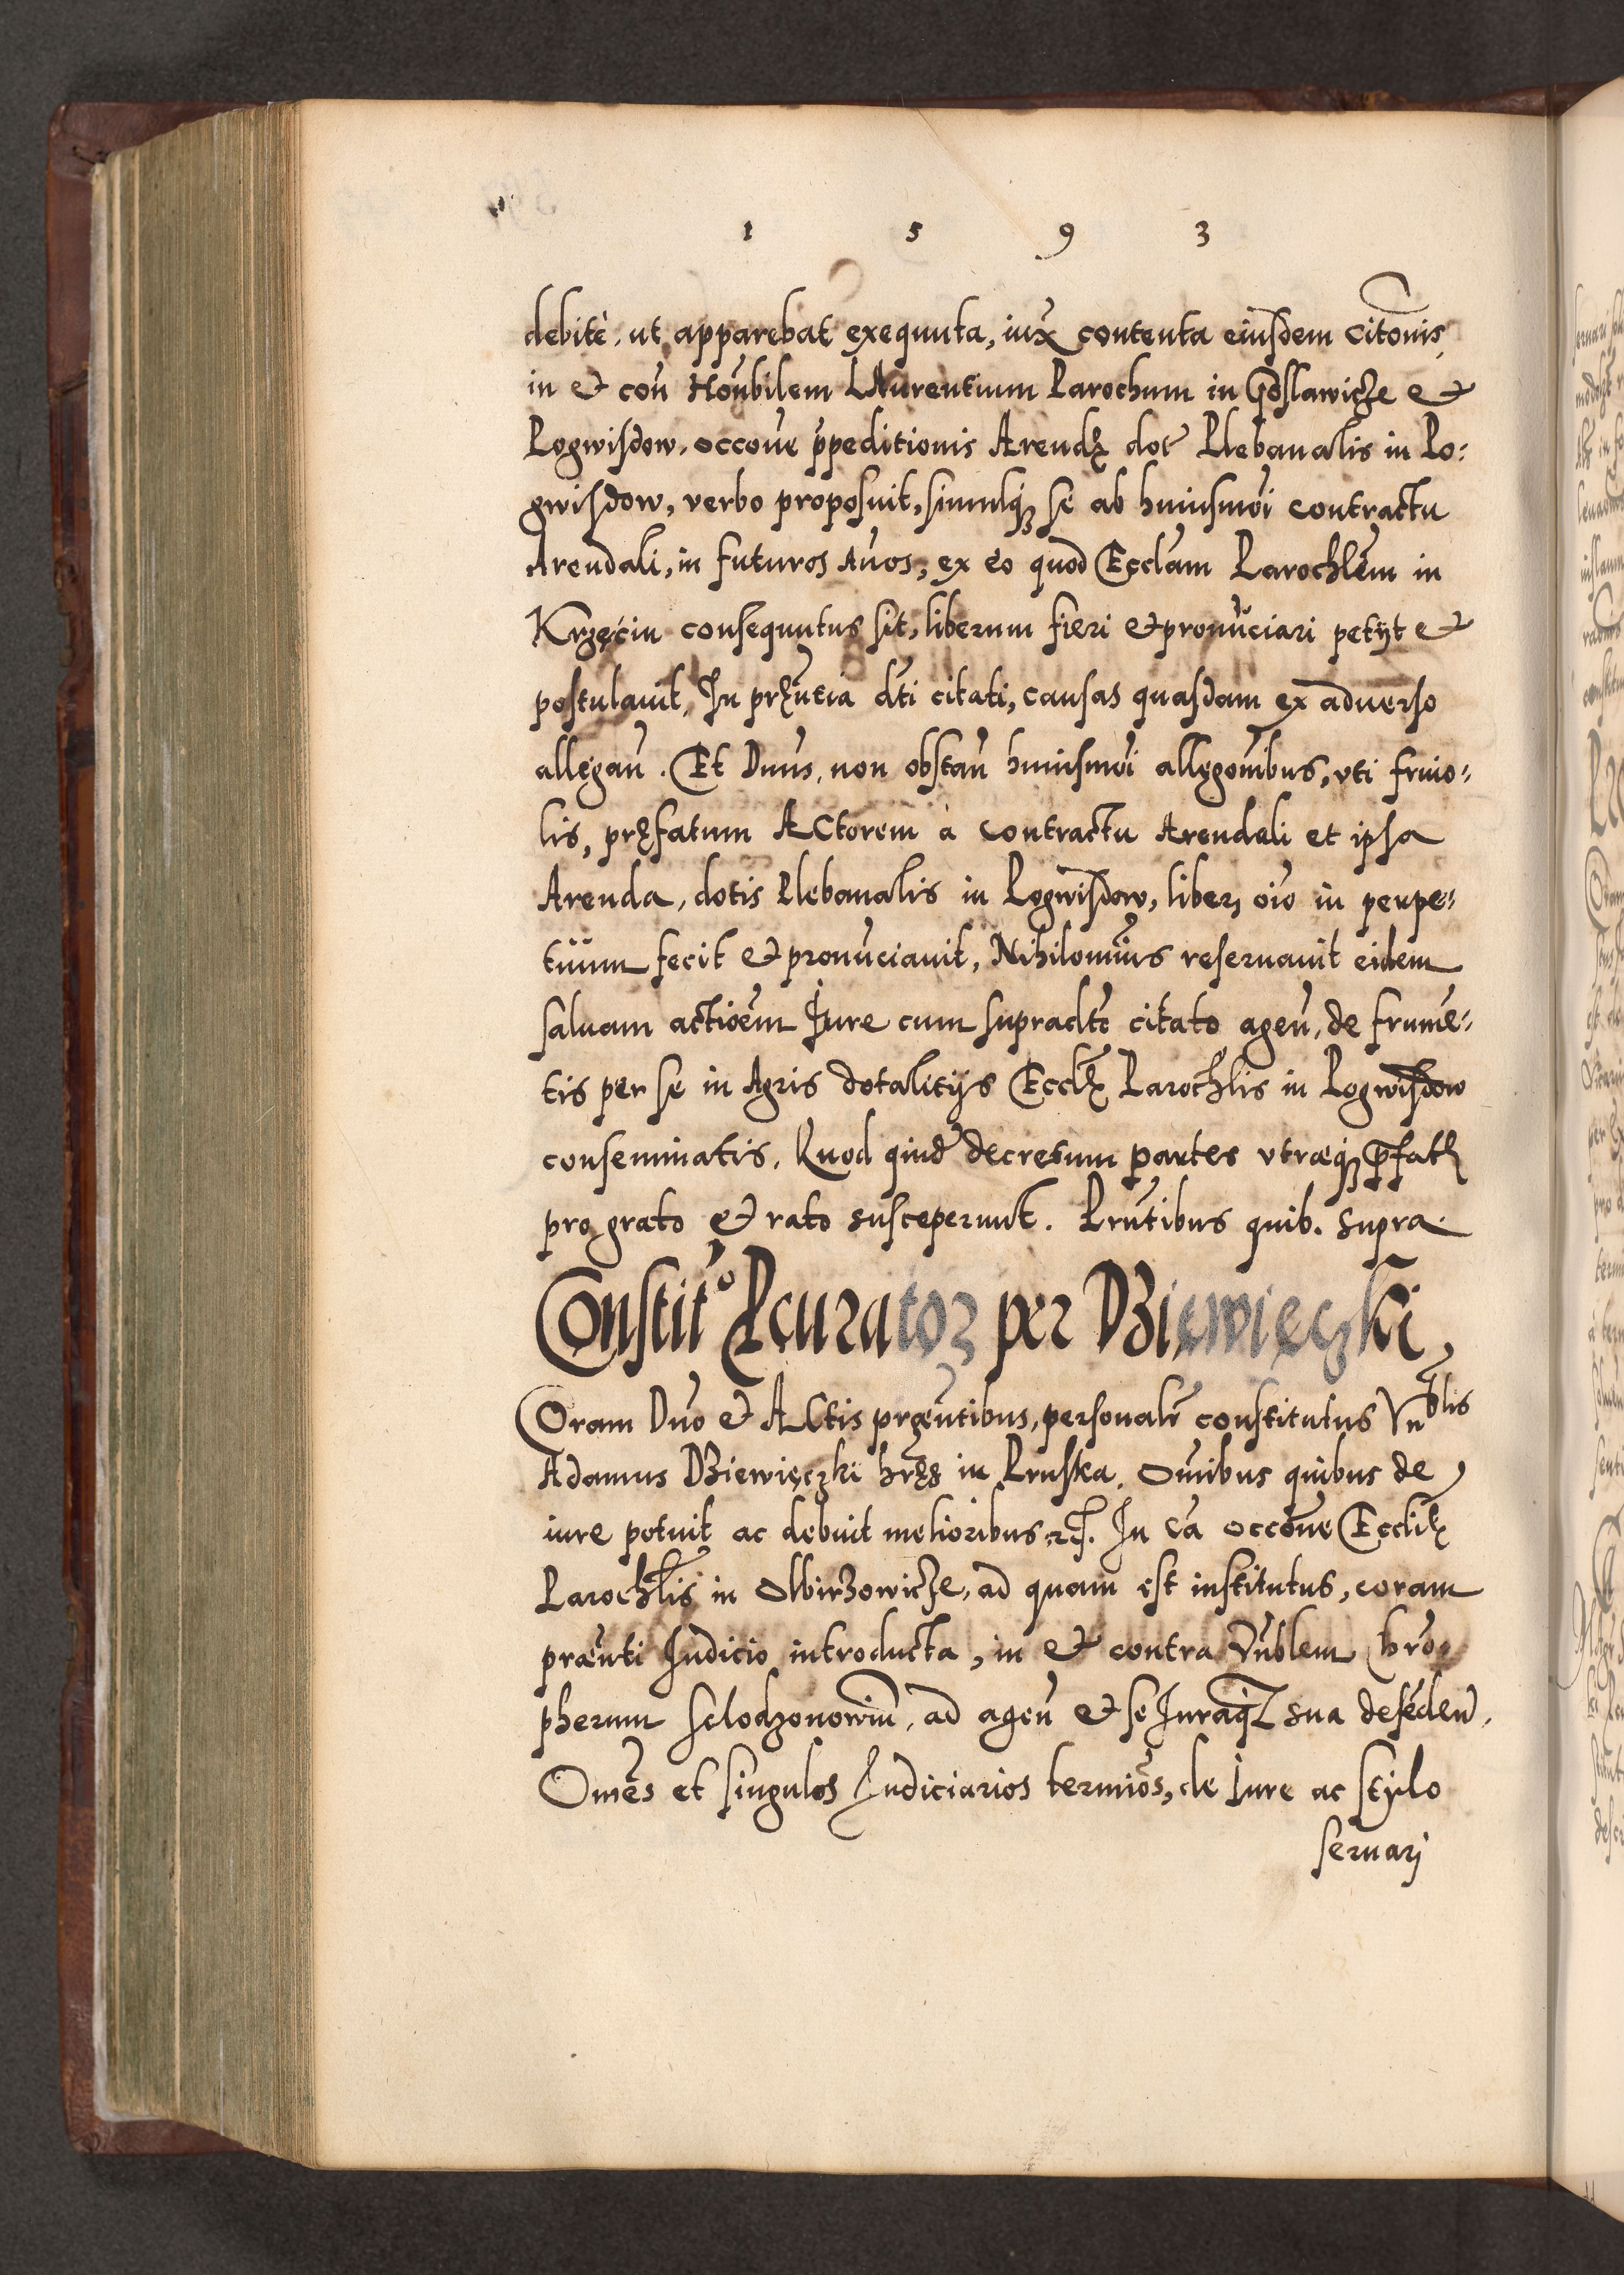 1 5 9 3
debitè, ut apparebat exequuta, iux̃ contenta eiusdem citõnis,
in et coñ Hoñbilem LAurentium Parochum in Gosławicze et
Pogwisdow, occõne p̃peditionis Arendę dot̃ Plebanalis in Po=
gwisdow, verbo proposuit, simulq₃ se ab huiusmõi contractu
Arendali, in futuros Años, ex eo quod Ecclãm Parochlẽm in
Krzęcin consequutus sit, liberum fieri et pronũciari petijt et
postulauit, In pręñtia dt̃i citati, causas quasdam ex aduerso
allegañ. Et Dñus, non obstañ huiusmõi allegõnibus, vti friuo=
lis, pręfatum ACtorem à contractu Arendali et ipsa
Arenda, dotis Plebanalis in Pogwisdow, liber₃ oĩo in perpe=
tuum fecit et pronũciauit, Nihilomiñs reseruauit eidem
saluam actioẽm Iure cum supradt̃o citato ageñ, de frumẽ=
tis per se in Agris dotalitijs Ecclę Parochlis in Pogwisdow
conseminatis. Quod quid̃ decretum partes vtraeq₃ p̃fatę
pro grato et rato susceperunt. Prñtibus quib. supra
Constit.º Pcurator per Dziewięczki
Coram Dño et ACtis praeñtibus, personalr̃ constitutus Vnblis
Adamus Dziewięczki hr̃ęs in Pruska. Om̃ibus quibus de
iure potuit ac debuit melioribus etc. In cã occõne Ecclię
Parochlis in Olbirzowicze, ad quam est institutus, coram
praeñti Iudicio introducta, in et contra Vñblem Chrõ=
pherum ad ageñ et se Iuraq₃ sua defẽdeñ.
Om̃es et singulos Iudiciarios termiõs, de Iure ac stylo
seruarj